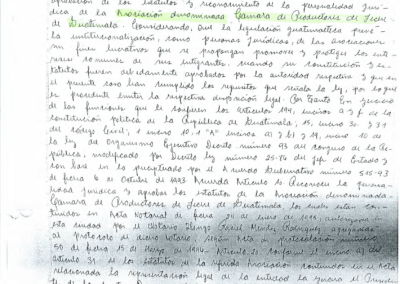 aprobación de los Estatutos y reconocimiento de la personalidad Jurí-
dica de la Asociación denominada Cámara de Productores de Leche
de Guatemala. Considerando, Que la legislación guatemalteca prevé
la institucionalización como personas jurídicas, de las asociaciones
sin fines lucrativos que se propongan promover y proteger los inte-
reses comunes de sus integrantes, cuando su constitución y es-
tatutos fueren debidamente aprobados por la autoridad respectiva y que en
el presente caso han cumplido los requisitos que señala la ley, por lo que
es procedente emitir la respectiva disposición legal. Por Tanto En ejercicio
de las funciones que le confieren los Artículos 194, incisos a) y f de la
constitución política de la República de Guatemala; 15, inciso 3o. y 31
del código Civil; 1 inciso 10, "A" incisos a) y b) y 19, inciso 10 de
la ley del Organismo Ejecutivo Decreto número 93 del congreso de la Re-
pública, modificado por Decreto ley número 25-86 del Jefe de Estado y
con base en lo preceptuado por el Acuerdo Gubernativo número 515-93
de fecha 6 de Octubre de 1993 Acuerda Artículo 1o. Reconocer la persona-
lidad jurídica y aprobar los estatutos de la Asociación denominada
Cámara de Productores de Leche de Guatemala, los cuales están con-
tenidos en Acta Notarial de fecha 24 de enero de
esta ciudad por el Notario Méndez Rodríguez
al protocolo de dicho Notario, según Acta de protocolación número
50 de fecha 15 de Artículo 2o. conforme el inciso
artículo 31 de los estatutos de la referida Asociación contenidos en el Acta
relacionada la representación legal de la entidad la ejerce el Presiden-